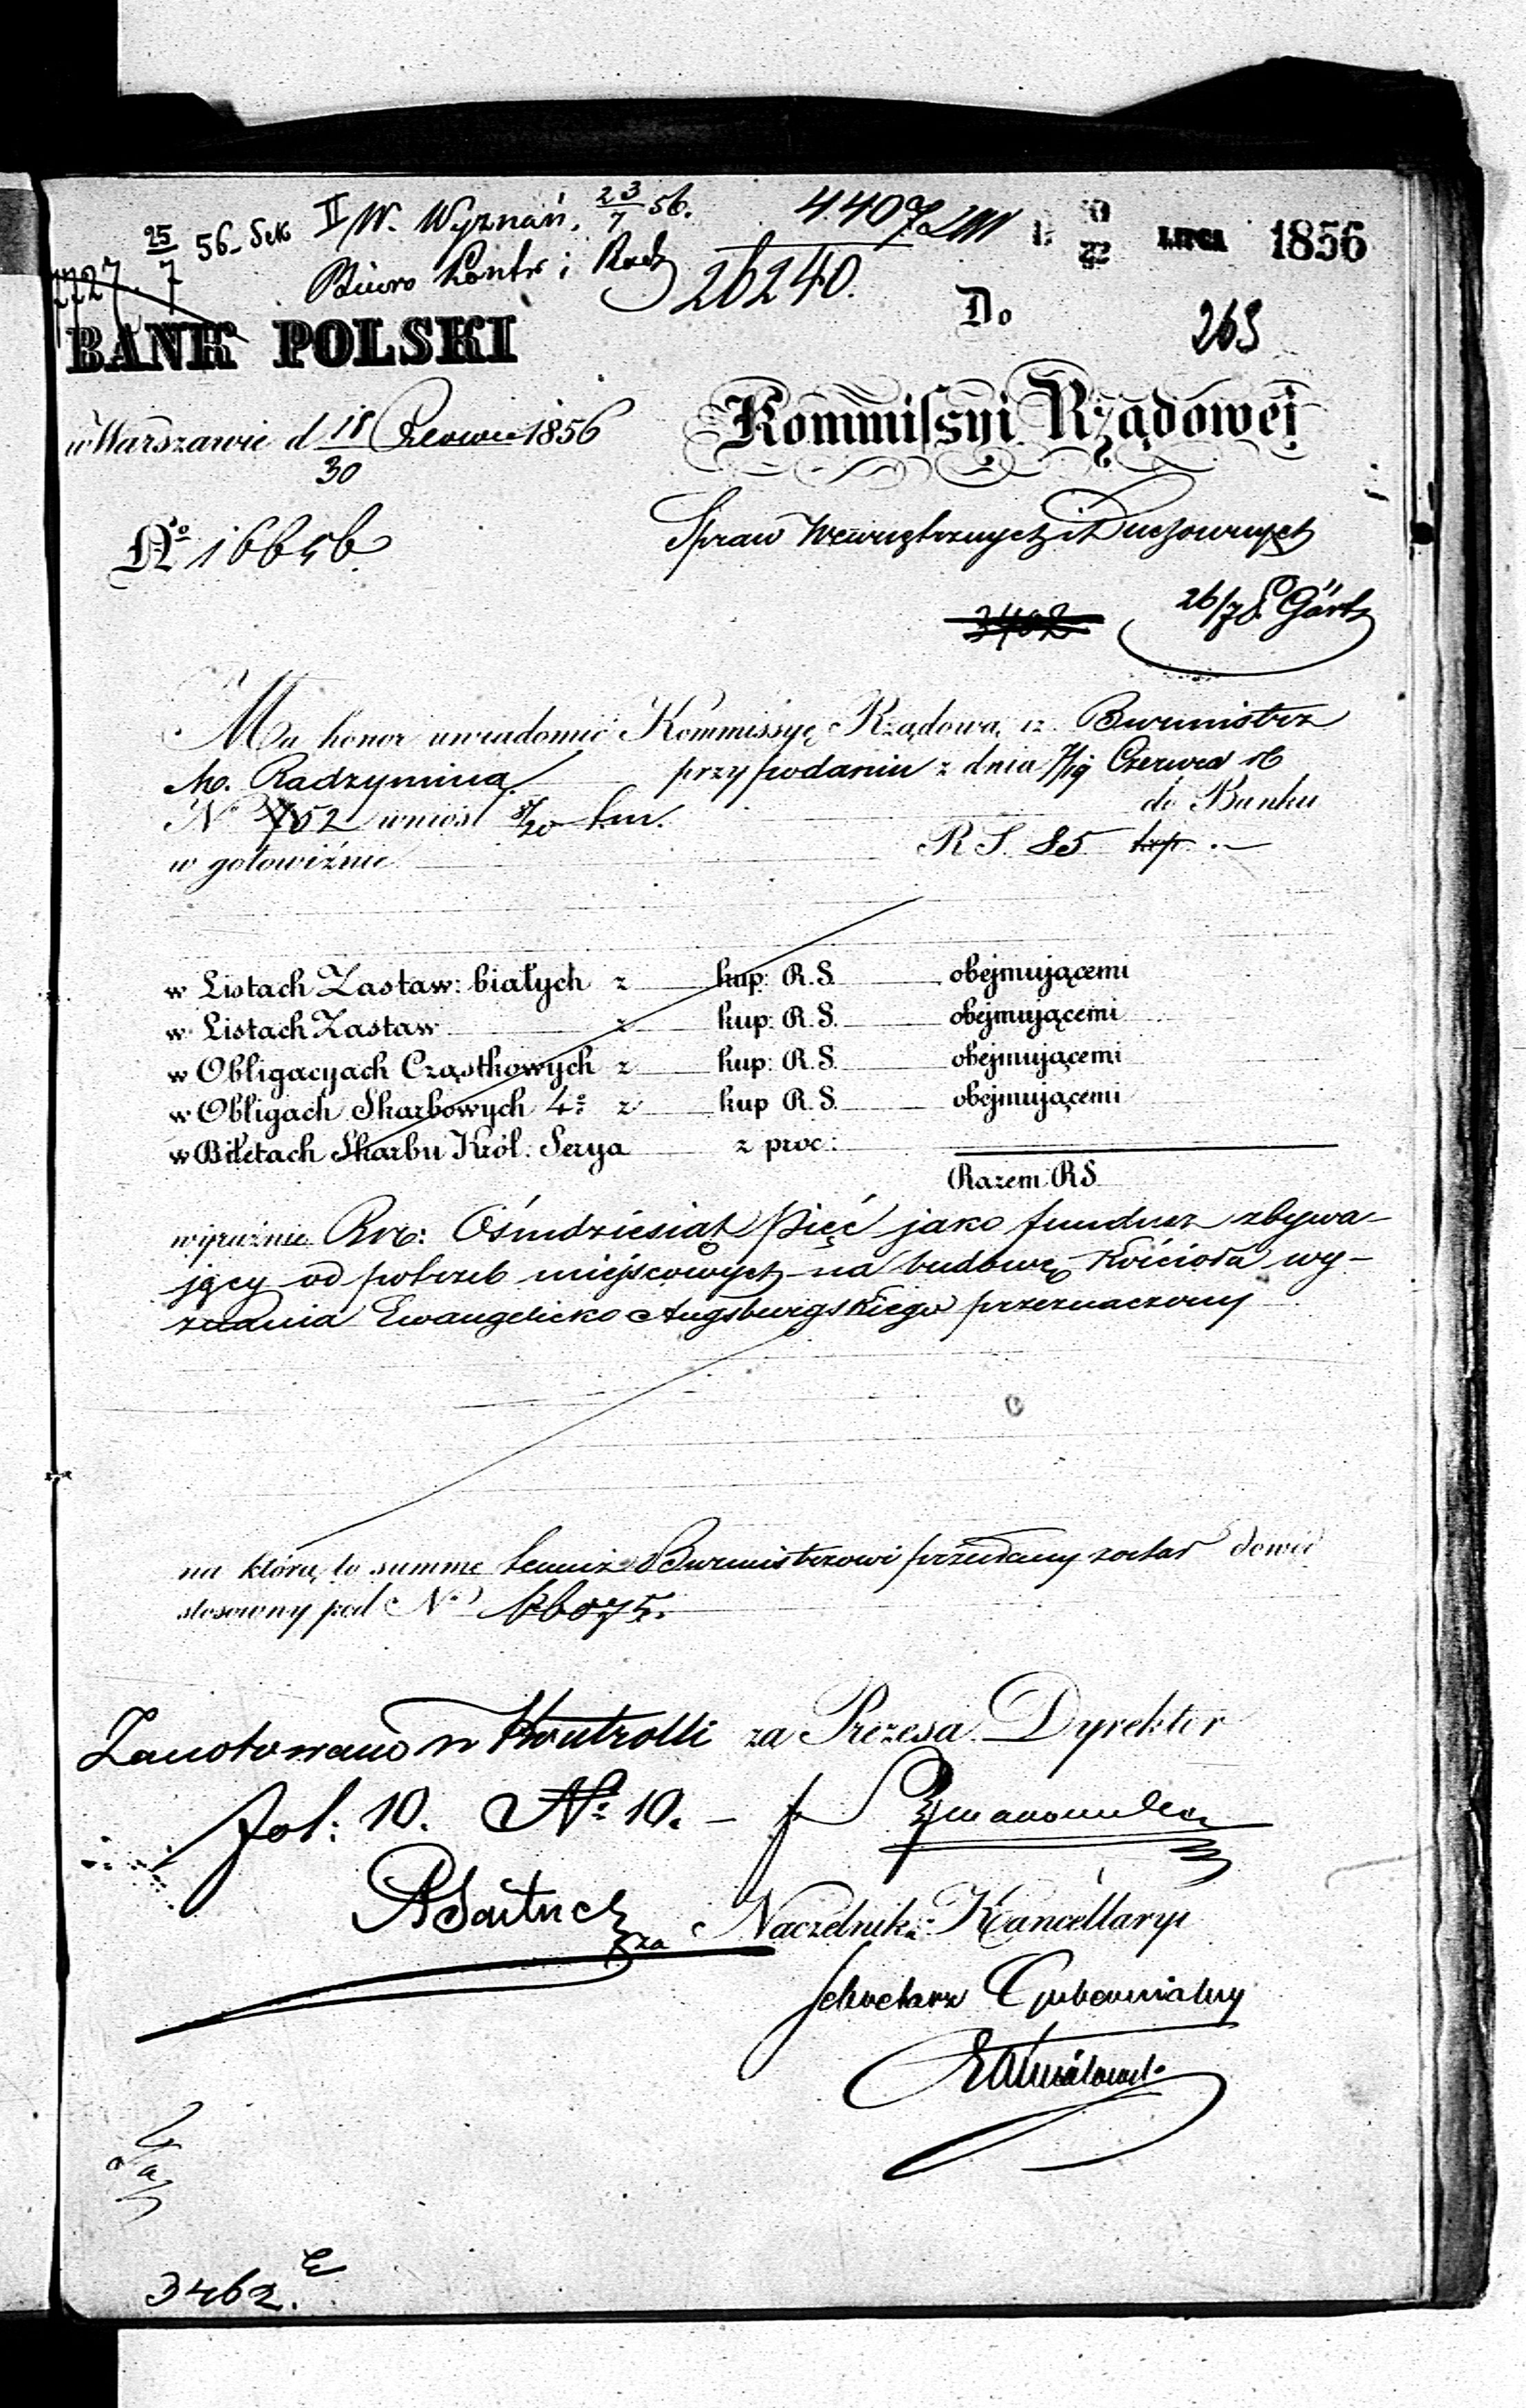 25/7 56. Sek II/W. Wyznań. 23/7 56. 4407 10/22 LIPCA 1856
2727
Biuro Kontr i Rach 26240.
BANK POLSKI Do 263
w Warszawie d 18/30 Czerwca 1856 Kommissyi Rządowej
No 16656 Spraw Wewnętrznych i Duchownych
3462 26/7 Gärtz
Ma honor uwiadomić Kommissyę Rządową, iż Burmistrz
M. Radzymina przy podaniu z dnia 7/19 Czerwca 56
No 752 wniósł 8/20 t.m. do Banku
w gotowiźnie R S. 85 kop. —
w Listach Zastaw: białych z kup: R.S. obejmującemi
w Listach Zastaw z kup: R.S. obejmującemi
w Obligacyach Cząstkowych z kup: R.S. obejmującemi
w Obligach Skarbowych 4o z kup R.S. obejmującemi
w Biletach Skarbu Król: Serya z proc:
Razem RS
wyraźnie Rs: Ośmdziesiąt Pięć jako fundusz zbywa-
jący od potrzeb miejscowych na budowę Kościoła wy-
znania Ewangelicko Augsburgskiego przeznaczony
na którą to summę temuż Burmistrzowi przesłany został dowód
stosowny pod No 16075.
Zanotowano w Kontrolli za Prezesa Dyrektor
fol: 10. No 10. –
za Naczelnik Kancellaryi
Sekretarz Gubernialny
3462.